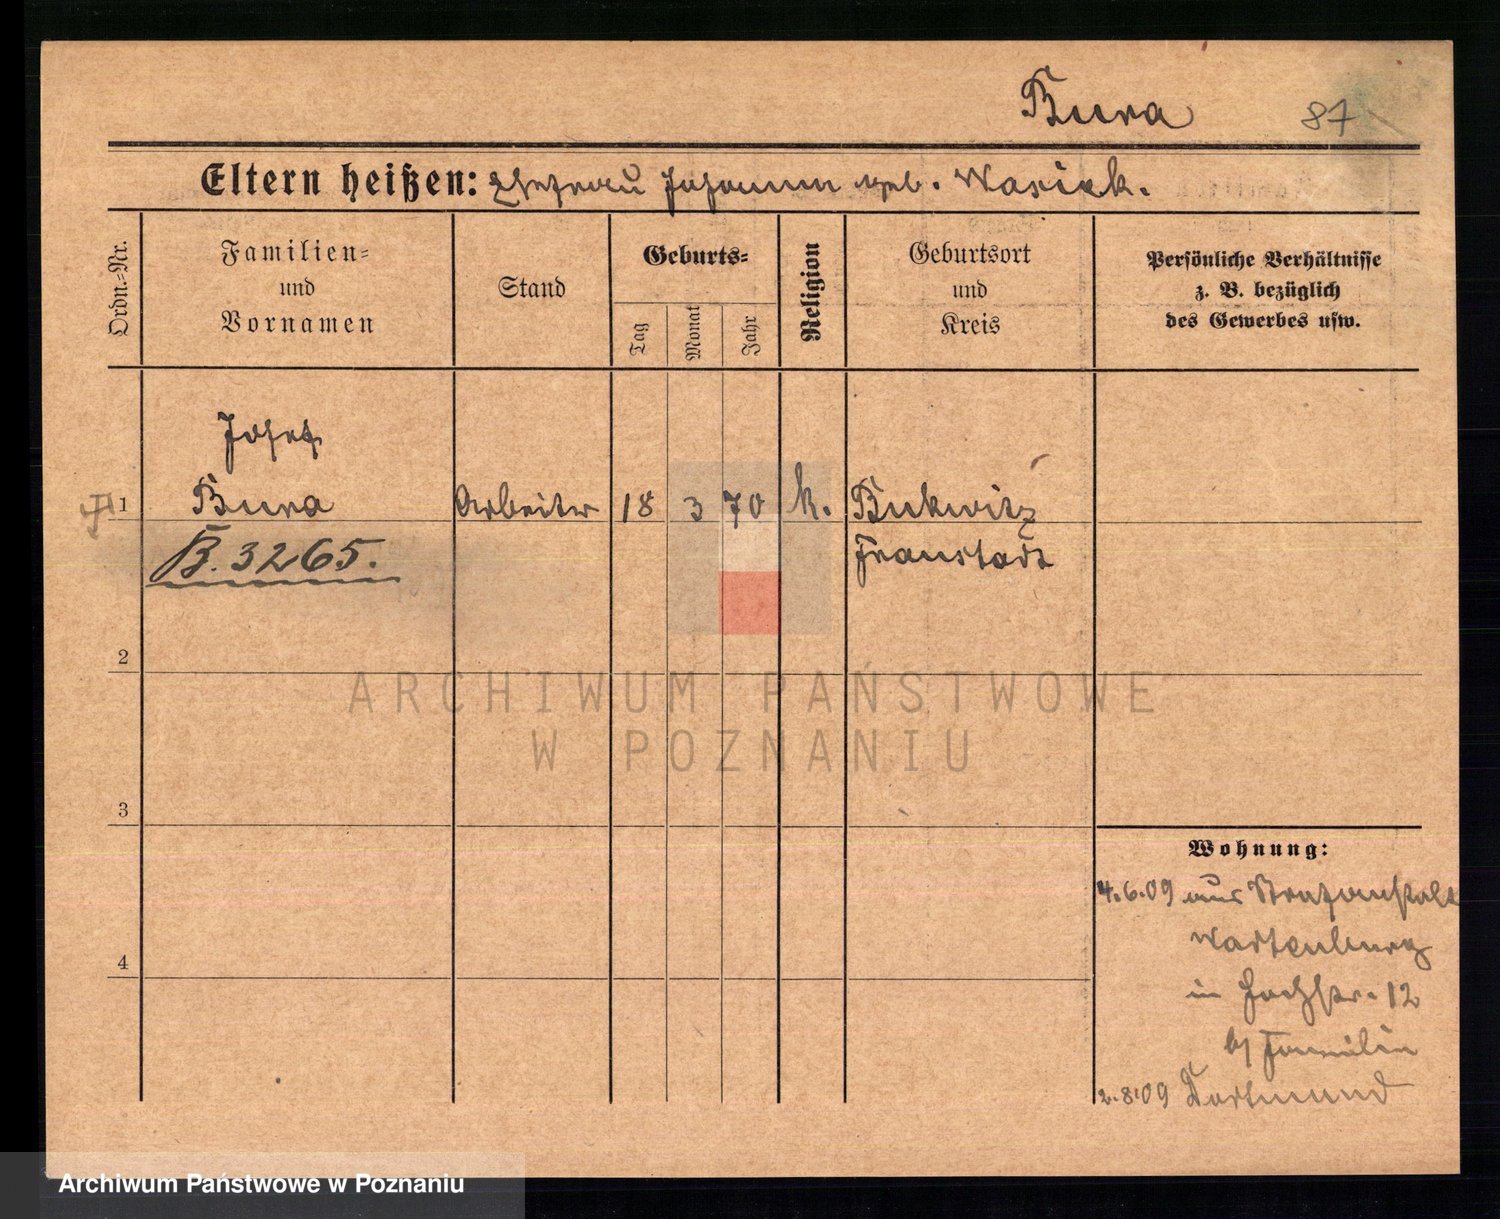 Bura 87
Eltern heißen: Ehefrau Johanna geb. Wasiek.
Ordn.-Nr.
Familien-
und
Vornamen
Stand
Geburts-
Tag
Monat
Jahr
Religion
Geburtsort
und
Kreis
Persönliche Verhältnisse
z. B. bezüglich
des Gewerbes usw.
Josef
1 Bura Arbeiter 18 3 70 k. Bukwitz
B. 3265. Fraustadt
2
3
4
Wohnung:
4.6.09 aus Strafanstalt
Wartenburg
in Hochstr. 12
b/ Familie
2.8.09 Dortmund
ARCHIWUM PAŃSTWOWE
W POZNANIU
Archiwum Państwowe w Poznaniu